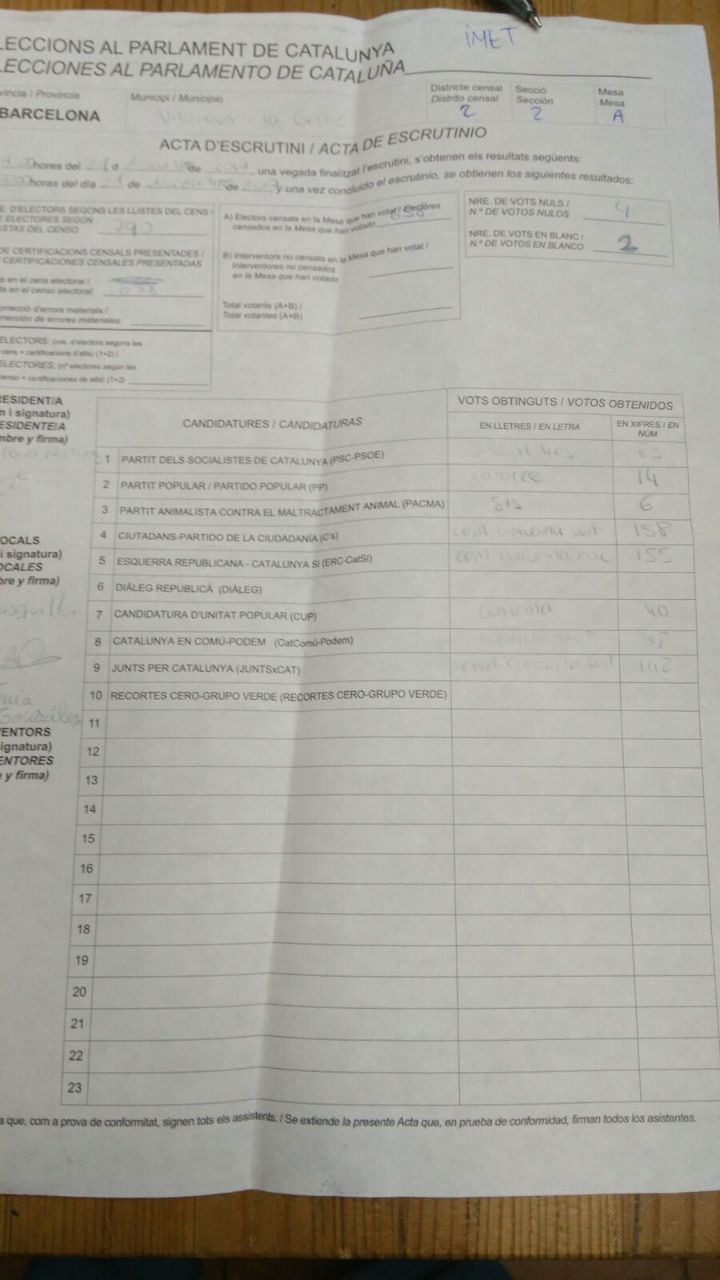 LECCIONS AL PARLAMENT DE CATALUNYA
LECCIONES AL PARLAMENTO DE CATALUÑA
iMET
víncia / Provincia
BARCELONA
Municipi / Municipio
Districte censal
Distrito censal
2
Secció
Sección
2
Mesa
Mesa
A
ACTA D'ESCRUTINI / ACTA DE ESCRUTINIO
hores del de , una vegada finalitzat l'escrutini, s'obtenen els resultats següents:
horas del día de de y una vez concluido el escrutinio, se obtienen los siguientes resultados:
E. D'ELECTORS SEGONS LES LLISTES DEL CENS /
E ELECTORES SEGÚN
ISTAS DEL CENSO
DE CERTIFICACIONS CENSALS PRESENTADES /
CERTIFICACIONES CENSALES PRESENTADAS
s en el cens electoral /
s en el censo electoral:
orrecció d'errors materials /
rrección de errores materiales:
ELECTORS: (nre. d'electors segons les
cens + certificacions d'alta) (1+2) /
ELECTORES: (nº electores según las
censo + certificaciones de alta) (1+2)
A) Electors censats en la Mesa que han votat / Electores
censados en la Mesa que han votado
B) Interventors no censats en la Mesa que han votat /
Interventores no censados
en la Mesa que han votado
Total votants (A+B) /
Total votantes (A+B)
NRE. DE VOTS NULS /
N.º DE VOTOS NULOS
4
NRE. DE VOTS EN BLANC /
N.º DE VOTOS EN BLANCO
2
RESIDENT/A
n i signatura)
ESIDENTE/A
mbre y firma)
OCALS
i signatura)
OCALES
bre y firma)
VENTORS
ignatura)
ENTORES
y firma)
CANDIDATURES / CANDIDATURAS
VOTS OBTINGUTS / VOTOS OBTENIDOS
EN LLETRES / EN LETRA
EN XIFRES / EN
NÚM.
1 PARTIT DELS SOCIALISTES DE CATALUNYA (PSC-PSOE)
2 PARTIT POPULAR / PARTIDO POPULAR (PP) catorce 14
3 PARTIT ANIMALISTA CONTRA EL MALTRACTAMENT ANIMAL (PACMA) sis 6
4 CIUTADANS-PARTIDO DE LA CIUDADANÍA (C's) 158
5 ESQUERRA REPUBLICANA - CATALUNYA SÍ (ERC-CatSí) 155
6 DIÀLEG REPUBLICÀ (DIÀLEG)
7 CANDIDATURA D'UNITAT POPULAR (CUP) 40
8 CATALUNYA EN COMÚ-PODEM (CatComú-Podem)
9 JUNTS PER CATALUNYA (JUNTSxCAT)
10 RECORTES CERO-GRUPO VERDE (RECORTES CERO-GRUPO VERDE)
11
12
13
14
15
16
17
18
19
20
21
22
23
a que, com a prova de conformitat, signen tots els assistents. / Se extiende la presente Acta que, en prueba de conformidad, firman todos los asistentes.